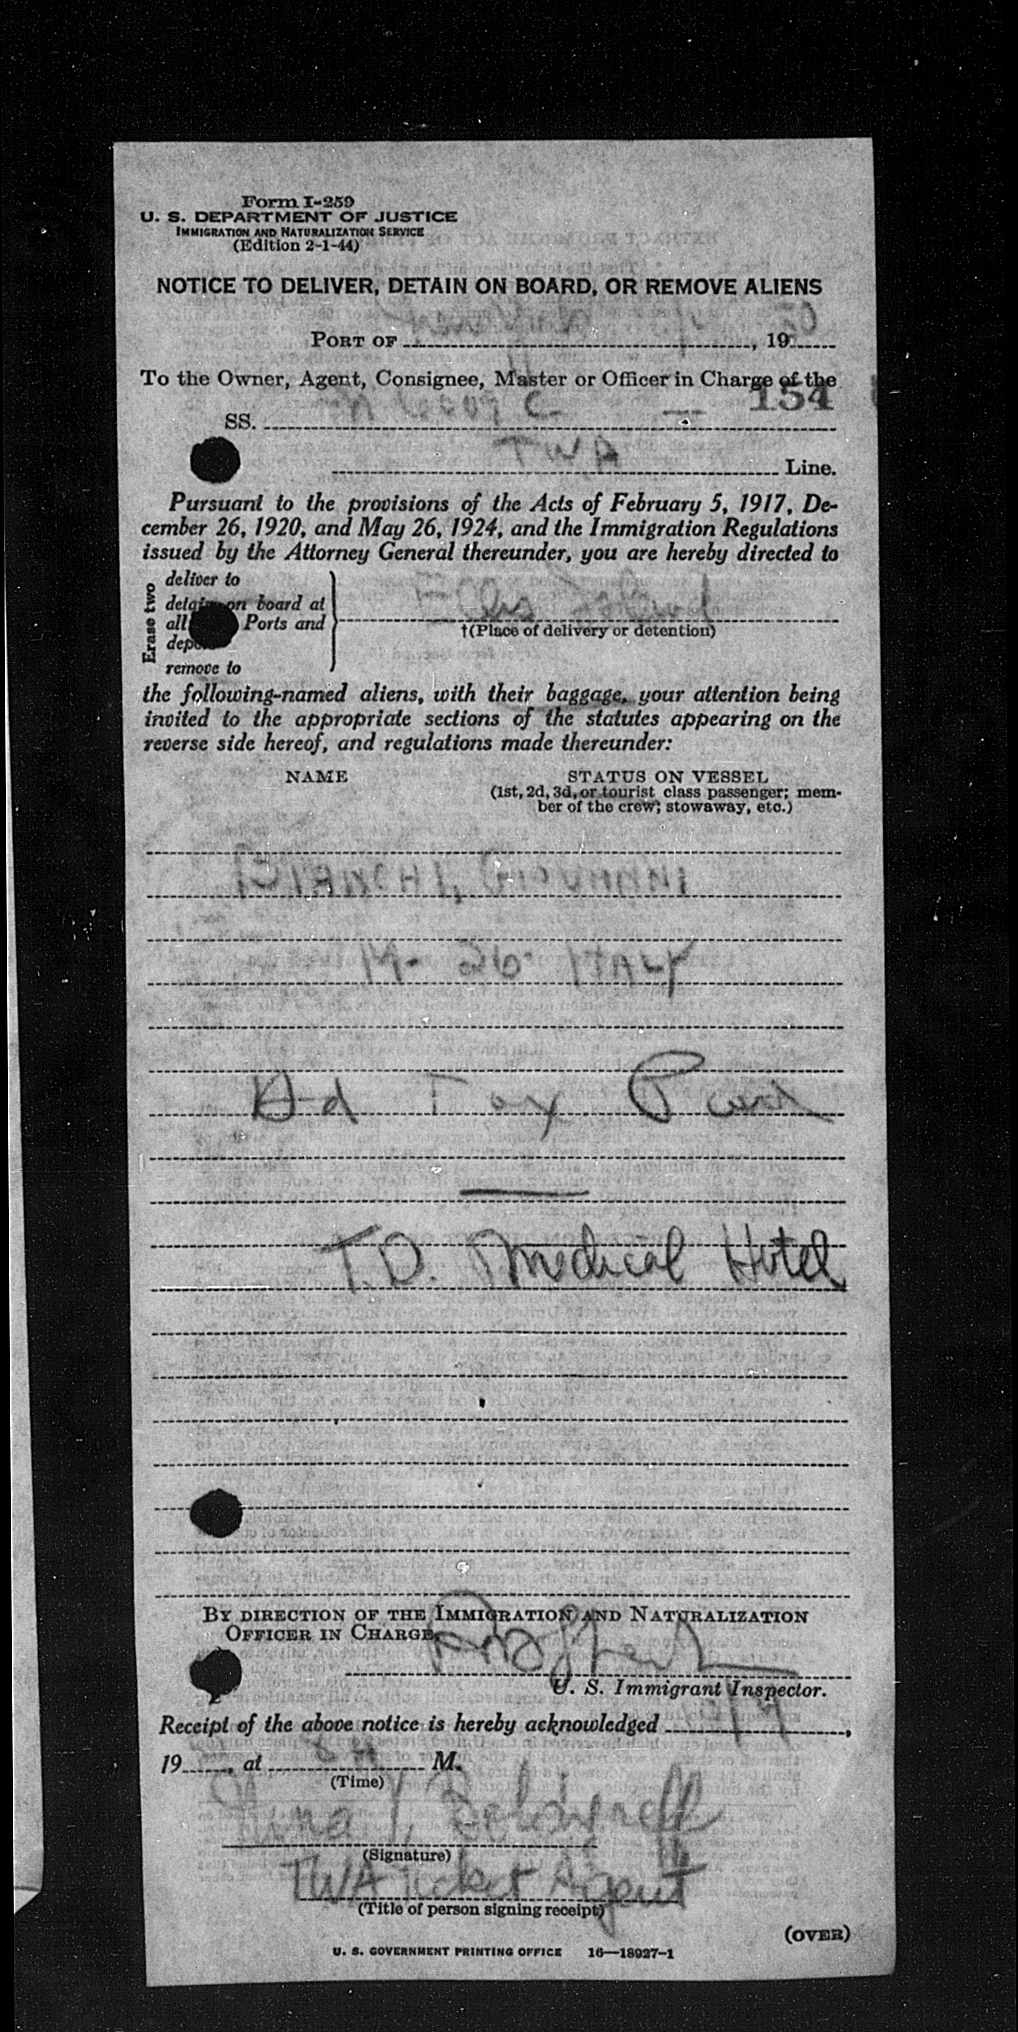 Form I-259
U. S. DEPARTMENT OF JUSTICE
IMMIGRATION AND NATURALIZATION SERVICE
(Edition 2-1-44)
NOTICE TO DELIVER, DETAIN ON BOARD, OR REMOVE ALIENS
PORT OF , 19
To the Owner, Agent, Consignee, Master or Officer in Charge of the
154
SS.
TWA Line.
Pursuant to the provisions of the Acts of February 5, 1917, De-
cember 26, 1920, and May 26, 1924, and the Immigration Regulations
issued by the Attorney General thereunder, you are hereby directed to
Erase two
deliver to
detain on board at
all Ports and
remove to
Ellis Island
†(Place of delivery or detention)
the following-named aliens, with their baggage, your attention being
invited to the appropriate sections of the statutes appearing on the
reverse side hereof, and regulations made thereunder:
NAME
STATUS ON VESSEL
(1st, 2d, 3d, or tourist class passenger; mem-
ber of the crew; stowaway, etc.)
ITALY
Hd Tax Paid
T.D. Medical Hotel
BY DIRECTION OF THE IMMIGRATION AND NATURALIZATION
OFFICER IN CHARGE,
U. S. Immigrant Inspector.
Receipt of the above notice is hereby acknowledged ,
19 , at M.
(Time)
(Signature)
TWA Ticket Agent
(Title of person signing receipt)
(OVER)
U. S. GOVERNMENT PRINTING OFFICE 16—18927-1